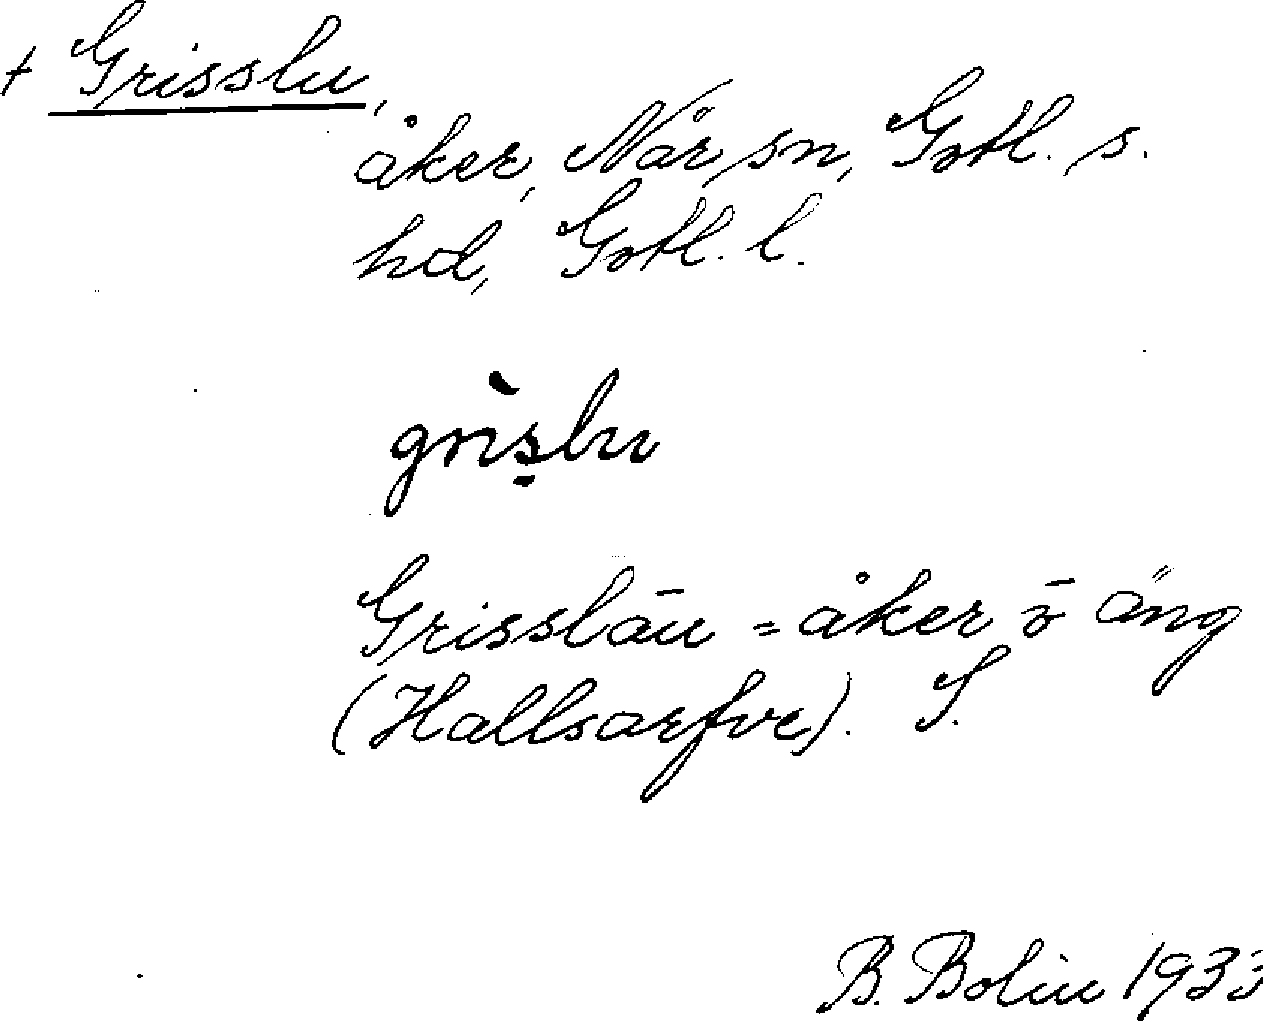 + Grisslu,
åker, När sn, Gotl. s.
hd, Gotl. l.
grislu
Grisslāu = åker ō äng
(Hallsarfve). S.
B. Bolin 1933